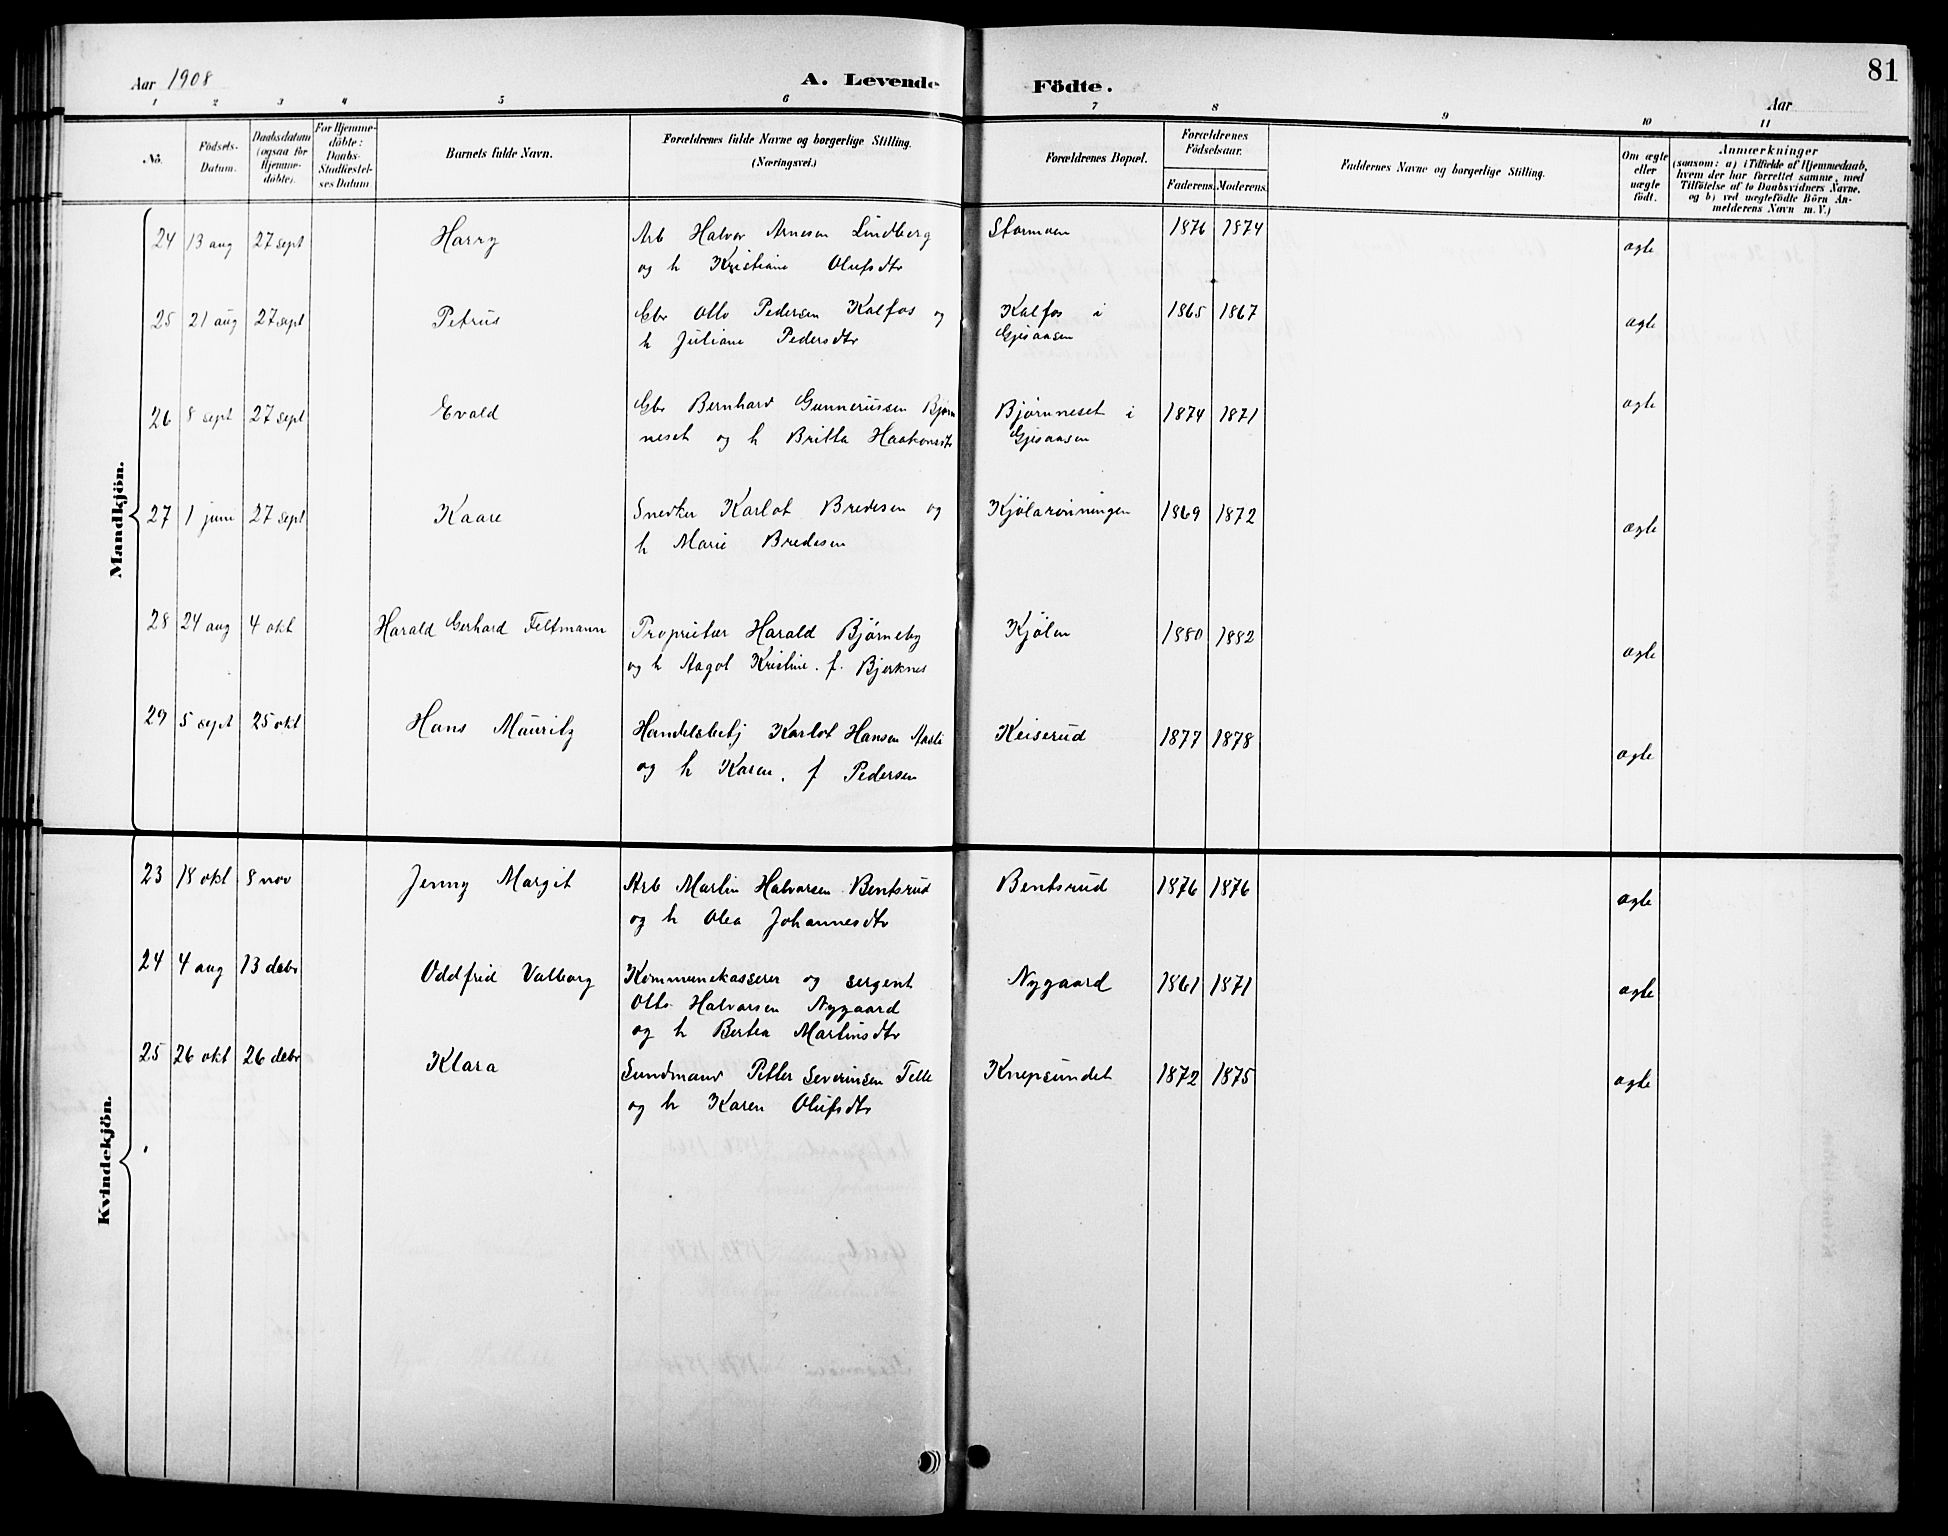 81
Aar 1908 A. Levende Födte. Aar
1 2 3 4 5 6 7 8 9 10 11
No. Födsels-Datum. Daabsdatum (ogsaa for Hjemme-döbte). For Hjemme-döbte: Daabs-Stadfæstel-ses Datum Barnets fulde Navn. Forældrenes fulde Navne og borgerlige Stilling. (Næringsvei.) Forældrenes Bopæl. Forældrenes Födselsaar. Faderens. Moderens. Faddernes Navne og borgerlige Stilling. Om ægte eller uægte födt. Anmærkninger (saasom: a) i Tilfælde af Hjemmedaab, hvem der har forrettet samme, med Tilföielse af to Daabsvidners Navne, og b) ved uægtefödte Börn An-melderens Navn m. V.)
Mandkjön.
24 13 aug 27 sept Harry Arb Halvor Arnesen Lindberg Stormoen 1876 1874 ægte
og h Kristiane Olufsdtr
25 21 aug 27 sept Petrus Gbr Otto Pedersen Kalfos og Kalfos i 1865 1867 ægte
h Juliane Pedersdtr Gjesaasen
26 8 sept 27 sept Evald Gbr Bernhard Gunnerussen Bjørn Bjørnneset i 1874 1871 ægte
neset og h Britta Haakonsdtr Gjesaasen
27 1 juni 27 sept Kaare Snedker Karlot Bredesen og Kjølarønningen 1869 1872 ægte
h Marie Bredesen
28 24 aug 4 okt Harald Gerhard Feltmann Proprietær Harald Bjørneby Kjølen 1880 1882 ægte
og h Aagot Kristine. f. Bjerknes
29 5 sept 25 okt Hans Mauritz Handelsbetj Karlot Hansen Keiserud 1877 1878 ægte
og h Karen. f Pedersen
Kvindekjön.
23 18 okt 8 nov Jenny Margit Arb Martin Halvorsen Bentsrud Bentsrud 1876 1876 ægte
og h Olea Johannesdtr
24 4 aug 13 debr Oddfrid Valborg Kommunekasserer og sergent Nygaard 1861 1871 ægte
Otto Halvorsen Nygaard
og h Bertea Martinsdtr
25 26 okt 26 debr Klara Sundmand Petter Severinsen Telle Knepsundet 1872 1875 ægte
og h Karen Olufsdtr